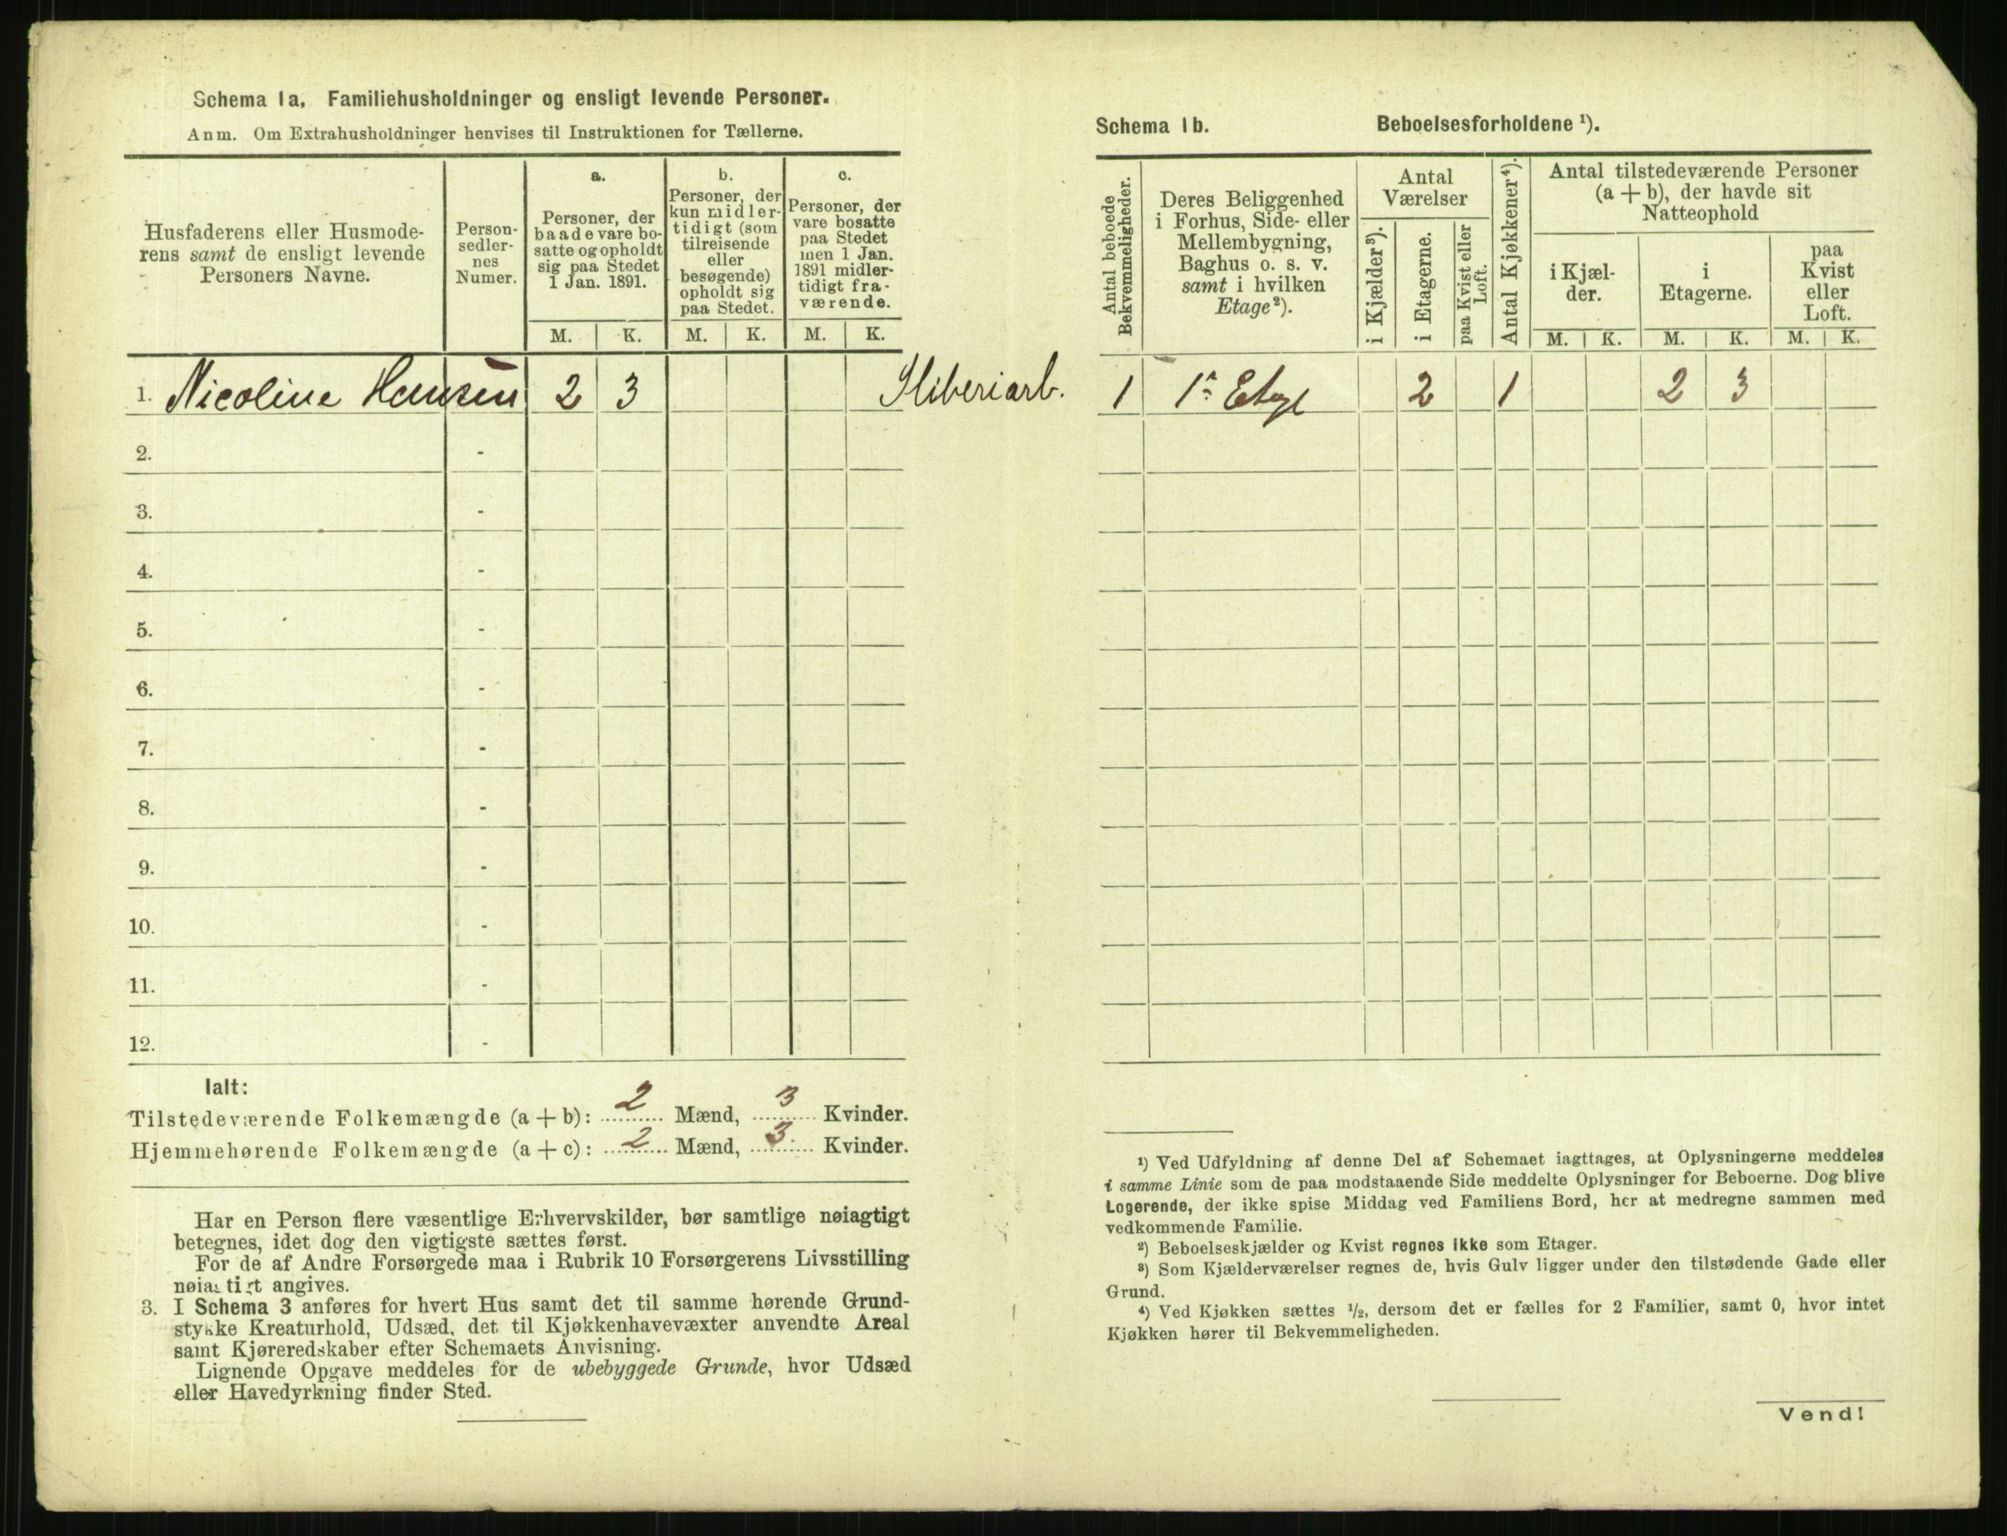 Schema 1a. Familiehusholdninger og ensligt levende Personer.
Anm. Om Extrahusholdninger henvises til Instruktionen for Tællerne.
Husfaderens eller Husmode-
rens samt de ensligt levende
Personers Navne.
Person-
sedler-
nes
Numer.
a.
Personer, der
baade vare bo-
satte og opholdt
sig paa Stedet
1 Jan. 1891.
b.
Personer, der
kun midler-
tidigt (som
tilreisende
eller
besøgende)
opholdt sig
paa Stedet.
c.
Personer, der
vare bosatte
paa Stedet
men 1 Jan.
1891 midler-
tidigt fra-
værende.
M. K. M. K. M. K.
1. Nicoline Hansen 2 3 Sliberiarb.
2. -
3. -
4. -
5. -
6. -
7. -
8. -
9. -
10. -
11. -
12. -
Ialt:
Tilstedeværende Folkemængde (a + b): 2 Mænd, 3 Kvinder.
Hjemmehørende Folkemængde (a + c): 2 Mænd, 3 Kvinder.
Har en Person flere væsentlige Erhvervskilder, bør samtlige nøiagtigt
betegnes, idet dog den vigtigste sættes først.
For de af Andre Forsørgede maa i Rubrik 10 Forsørgerens Livsstilling
nøiagtigt angives.
3. I Schema 3 anføres for hvert Hus samt det til samme hørende Grund-
stykke Kreaturhold, Udsæd, det til Kjøkkenhavevæxter anvendte Areal
samt Kjøreredskaber efter Schemaets Anvisning.
Lignende Opgave meddeles for de ubebyggede Grunde, hvor Udsæd
eller Havedyrkning finder Sted.
Schema 1b. Beboelsesforholdene ¹).
Antal beboede
Bekvemmeligheder.
Deres Beliggenhed
i Forhus, Side- eller
Mellembygning,
Baghus o. s. v.
samt i hvilken
Etage²).
Antal
Værelser
i Kjælder³).
i Etagerne.
paa Kvist eller
Loft.
Antal Kjøkkener⁴).
Antal tilstedeværende Personer
(a + b), der havde sit
Natteophold
i Kjæl-
der.
i
Etagerne.
paa
Kvist
eller
Loft.
M. K. M. K. M. K.
1 1ᵉ Etage 2 1 2 3
¹) Ved Udfyldning af denne Del af Schemaet iagttages, at Oplysningerne meddeles
i samme Linie som de paa modstaaende Side meddelte Oplysninger for Beboerne. Dog blive
Logerende, der ikke spise Middag ved Familiens Bord, her at medregne sammen med
vedkommende Familie.
²) Beboelseskjælder og Kvist regnes ikke som Etager.
³) Som Kjælderværelser regnes de, hvis Gulv ligger under den tilstødende Gade eller
Grund.
⁴) Ved Kjøkken sættes ½, dersom det er fælles for 2 Familier, samt 0, hvor intet
Kjøkken hører til Bekvemmeligheden.
Vend!